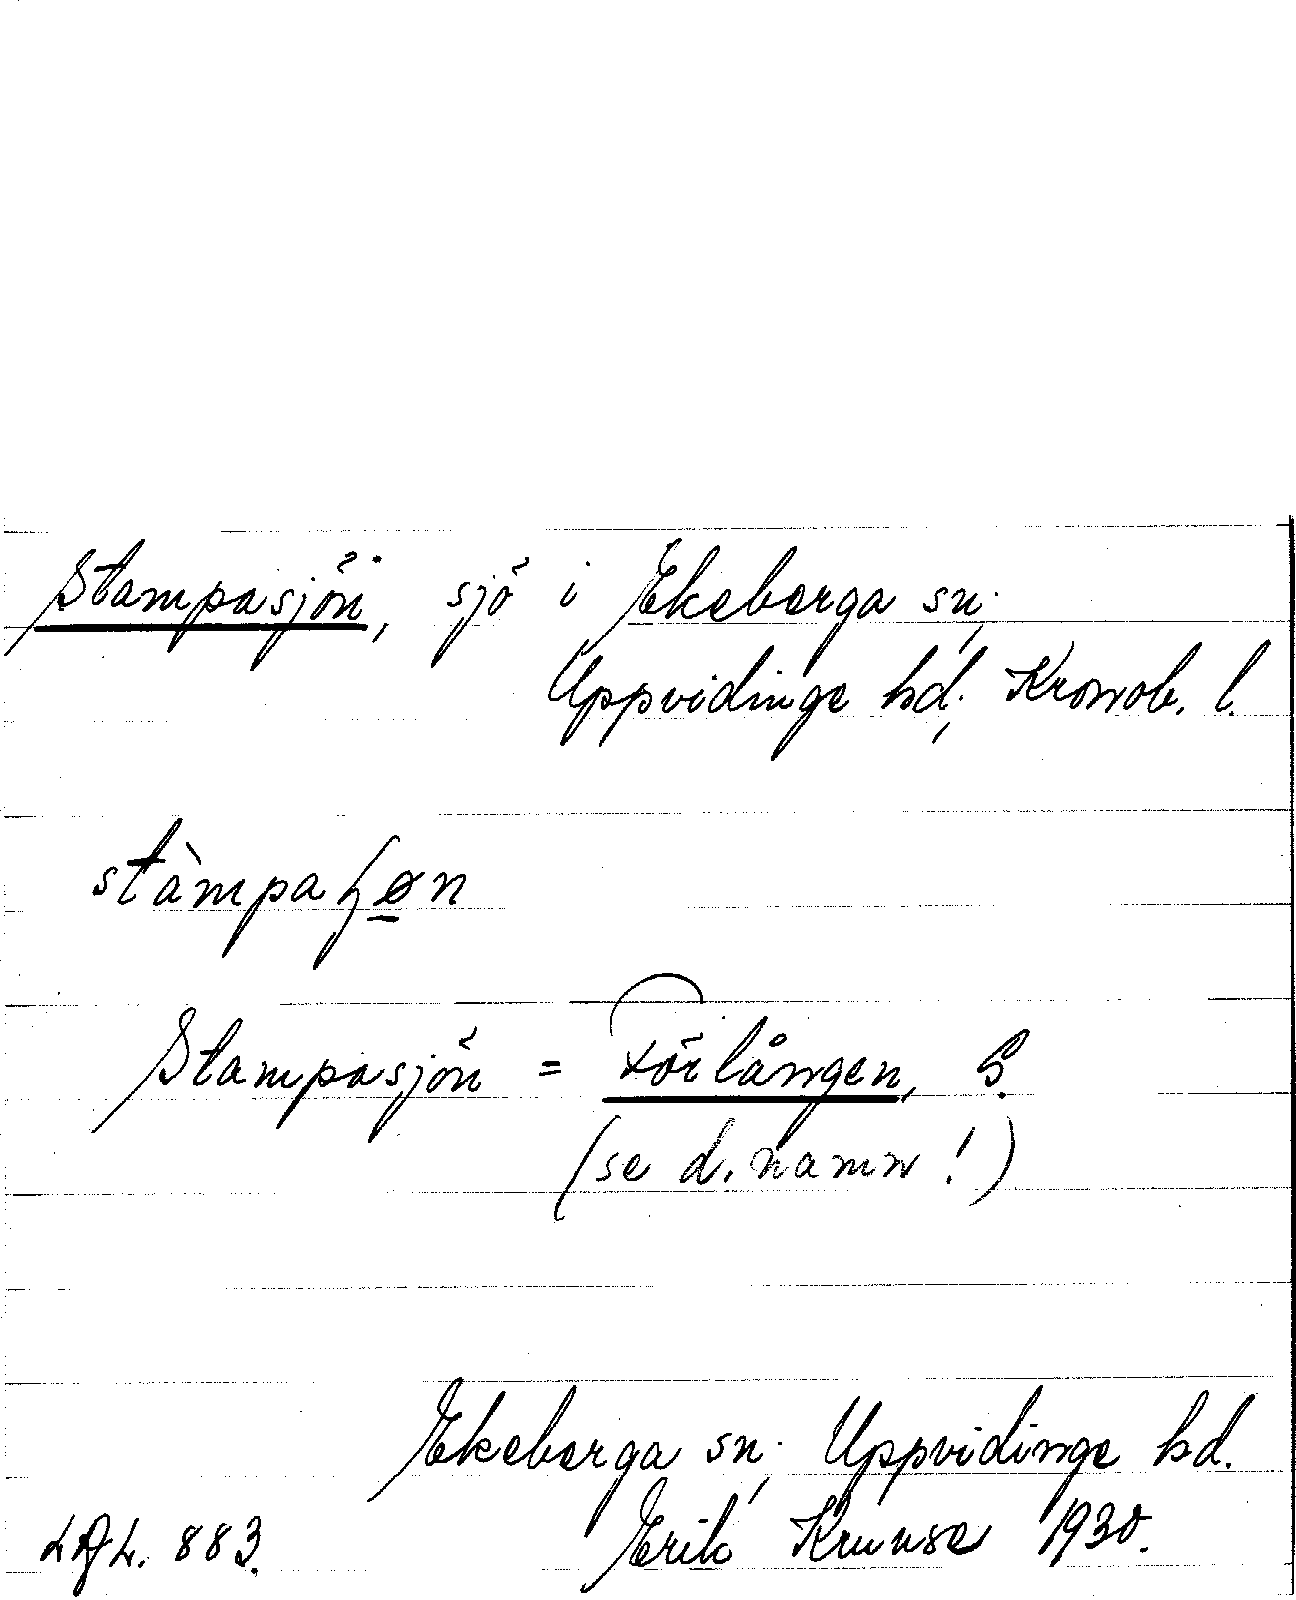 Stampasjön, sjö i Ekeberga sn;
Uppvidinge hd; Kronob. l.
stàmpaɧøn
Stampasjön = Törlången, S.
(se d. namn!)
Ekeberga sn; Uppvidinge hd.
883. Erik Kruuse 1930.